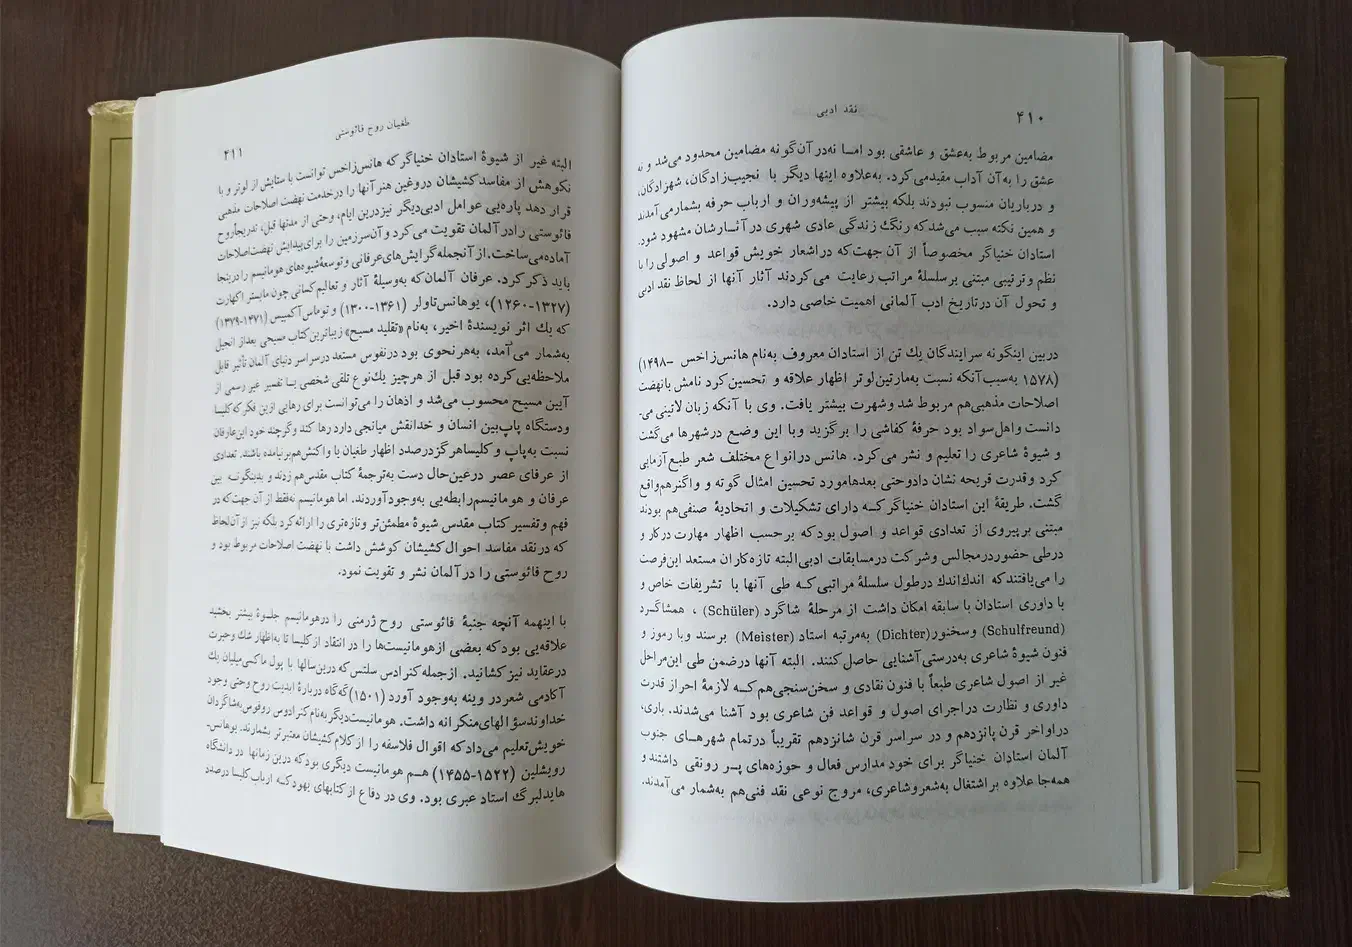 ۴۱۰
نقد ادبی
مضامین مربوط به‌عشق و عاشقی بود امـا نه‌در آن‌گو نه مضامین محدود می‌شد و نه
عشق را به‌آن آداب مقیدمی‌کرد. به‌علاوه اینها دیگر با نجیب‌زادگان، شهزادگان،
و درباریان منسوب نبودند بلکه بیشتر از پیشه‌وران و ارباب حرفه بشمارمی‌آمدند
و همین نکته سبب می‌شدکه رنگ زندگی عادی شهری در آثـارشان مشهود شود.
استادان خنیاگر مخصوصاً از آن جهت‌که دراشعار خویش قواعد و اصولی را با
نظم وترتیبی مبتنی برسلسلهٔ مراتب رعایت می‌کردند آثار آنها از لحاظ نقد ادبی
و تحول آن درتاریخ ادب آلمانی اهمیت خاصی دارد.
دربین اینگونه سرایندگان یك تن از استادان معروف به‌نام هانس‌زاخس (۱۴۹۸–
۱۵۷۸) به‌سبب آنکه نسبت به‌مارتین‌لوتر اظهار علاقه و تحسین کرد نامش با نهضت
اصلاحات مذهبی‌هم مربوط شد وشهرت بیشتر یافت. وی با آنکه زبان لاتینی می‌-
دانست واهل‌سواد بود حرفهٔ کفاشی را برگزید وبا این وضع درشهرها می‌گشت
و شیوهٔ شاعری را تعلیم و نشر می‌کرد. هانس درانواع مختلف شعر طبع‌آزمایی
کرد وقدرت قریحه نشان دادوحتی بعدهامورد تحسین امثال گوته و واگنرهم‌واقع
گشت. طریقهٔ این استادان خنیاگرکـه دارای تشکیلات و اتحادیهٔ صنفی‌هم بودند
مبتنی برپیروی از تعدادی قواعد و اصول بودکه برحسب اظهار مهارت درکار و
درطی حضوردرمجالس وشرکت درمسابقات ادبی‌البته تازه‌کاران مستعد این‌فرصت
را می‌یافتندکه اندك‌اندك درطول سلسلهٔ مراتبی‌کـه طی آنها با تشریفات خاص و
با داوری استادان با سابقه امکان داشت از مرحلهٔ شاگرد (Schüler) ، همشاگرد
(Schulfreund) وسخنور(Dichter) به‌مرتبه استاد (Meister) برسند وبا رموز و
فنون شیوهٔ شاعری به‌درستی‌آشنایی حاصل‌کنند. البته آنها درضمن طی این‌مراحل
غیر از اصول شاعری طبعاً با فنون نقادی و سخن‌سنجی‌هم‌کـه لازمهٔ احراز قدرت
داوری و نظارت دراجرای اصول و قواعد فن شاعری بود آشنا می‌شدند. باری،
دراواخر قرن پانزدهم و در سراسر قرن شانزدهم تقریباً درتمام شهرهـای جنوب
آلمان استادان خنیاگر برای خود مدارس فعال و حوزه‌های پـر رونقی داشتند و
همه‌جا علاوه براشتغال به‌شعروشاعری، مروج نوعی نقد فنی‌هم به‌شمار می‌آمدند.
طغیان روح فائوستی
۴۱۱
البته غیر از شیوهٔ استادان خنیاگر که هانس‌زاخس توانست با ستایش از لوتر و با
نکوهش از مفاسد کشیشان دروغین هنر آنها را درخدمت نهضت اصلاحات مذهبی
قرار دهد پاره‌یی عوامل ادبی‌دیگر نیزدرین ایام، وحتی از مدتها قبل، تدریجاً روح
فائوستی را درآلمان تقویت می‌کرد و آن‌سرزمین را برای‌پیدایش نهضت‌اصلاحات
آماده‌می‌ساخت. از آنجمله‌گرایش‌های‌عرفانی و توسعهٔ‌شیوه‌های هومانیسم را دراینجا
باید ذکر کرد. عرفان آلمان‌که به‌وسیلهٔ آثار و تعالیم‌کسانی چون مایستر اکهارت
(۱۳۲۷-۱۲۶۰)، یوهانس‌تاولر (۱۳۶۱-۱۳۰۰) و توماس‌آکمپیس (۱۴۷۱-۱۳۷۹)
که یك اثر نویسندهٔ اخیر، به‌نام «تقلید مسیح» زیباترین‌کتاب مسیحی بعداز انجیل
به‌شمار می‌آمد، به‌هرنحوی بود درنفوس مستعد درسراسر دنیای آلمان تأثیر قابل
ملاحظه‌یی کرده بود قبل از هرچیز یك‌نوع تلقی شخصی بـا تفسیر غیر رسمی از
آیین مسیح محسوب می‌شد و اذهان را می‌توانست برای رهایی ازین فکر که‌کلیسا
ودستگاه پاپ‌بین انسان و خدانقش میانجی دارد رها کند وگرچند خود این‌عارفان
نسبت به‌پاپ و کلیساهرگز درصدد اظهار طغیان یا واکنش‌هم‌برنیامده باشند. تعدادی
از عرفای عصر درعین‌حال دست به‌ترجمهٔ کتاب مقدس‌هم زدند و بدینگونـه بین
عرفان و هومانیسم‌رابطه‌یی به‌وجودآوردند. اما هومانیسم نه‌فقط از آن جهت‌که در
فهم وتفسیر کتاب مقدس شیوهٔ مطمئن‌تر وتازه‌تری را ارائه‌کرد بلکه نیز از آن‌لحاظ
که درنقد مفاسد احوال کشیشان کوشش داشت با نهضت اصلاحات مربوط بود و
روح فائوستی را درآلمان نشر و تقویت نمود.
با اینهمه آنچه جنبهٔ فائوستی روح ژرمنی را درهومانیسم جلـوهٔ بیشتر بخشید
علاقه‌یی بود که بعضی ازهومانیست‌ها را در انتقاد ازکلیسا تا به‌اظهار شك وحیرت
درعقاید نیز کشانید. ازجمله کنرادس سلتس که درین‌سالها با پول ماکسی‌میلیان یك
آکادمی شعردر وینه به‌وجود آورد (۱۵۰۱)که‌گاه دربارهٔ ابدیت روح وحتی وجود
خداوندسؤالهای‌منکرانه داشت. هومانیست‌دیگر به‌نام کنرادوس روفوس‌به‌شاگردان
خویش‌تعلیم می‌دادکه اقوال فلاسفه را ازکلام کشیشان معتبرتر بشمارند. یوهانس-
رویشلین (۱۵۲۲-۱۴۵۵) هـم هومانیست دیگری بودکه درین زمانها در دانشگاه
هایدلبرگ استاد عبری بود. وی در دفاع از کتابهای یهودکـه ارباب‌کلیسا درصدد